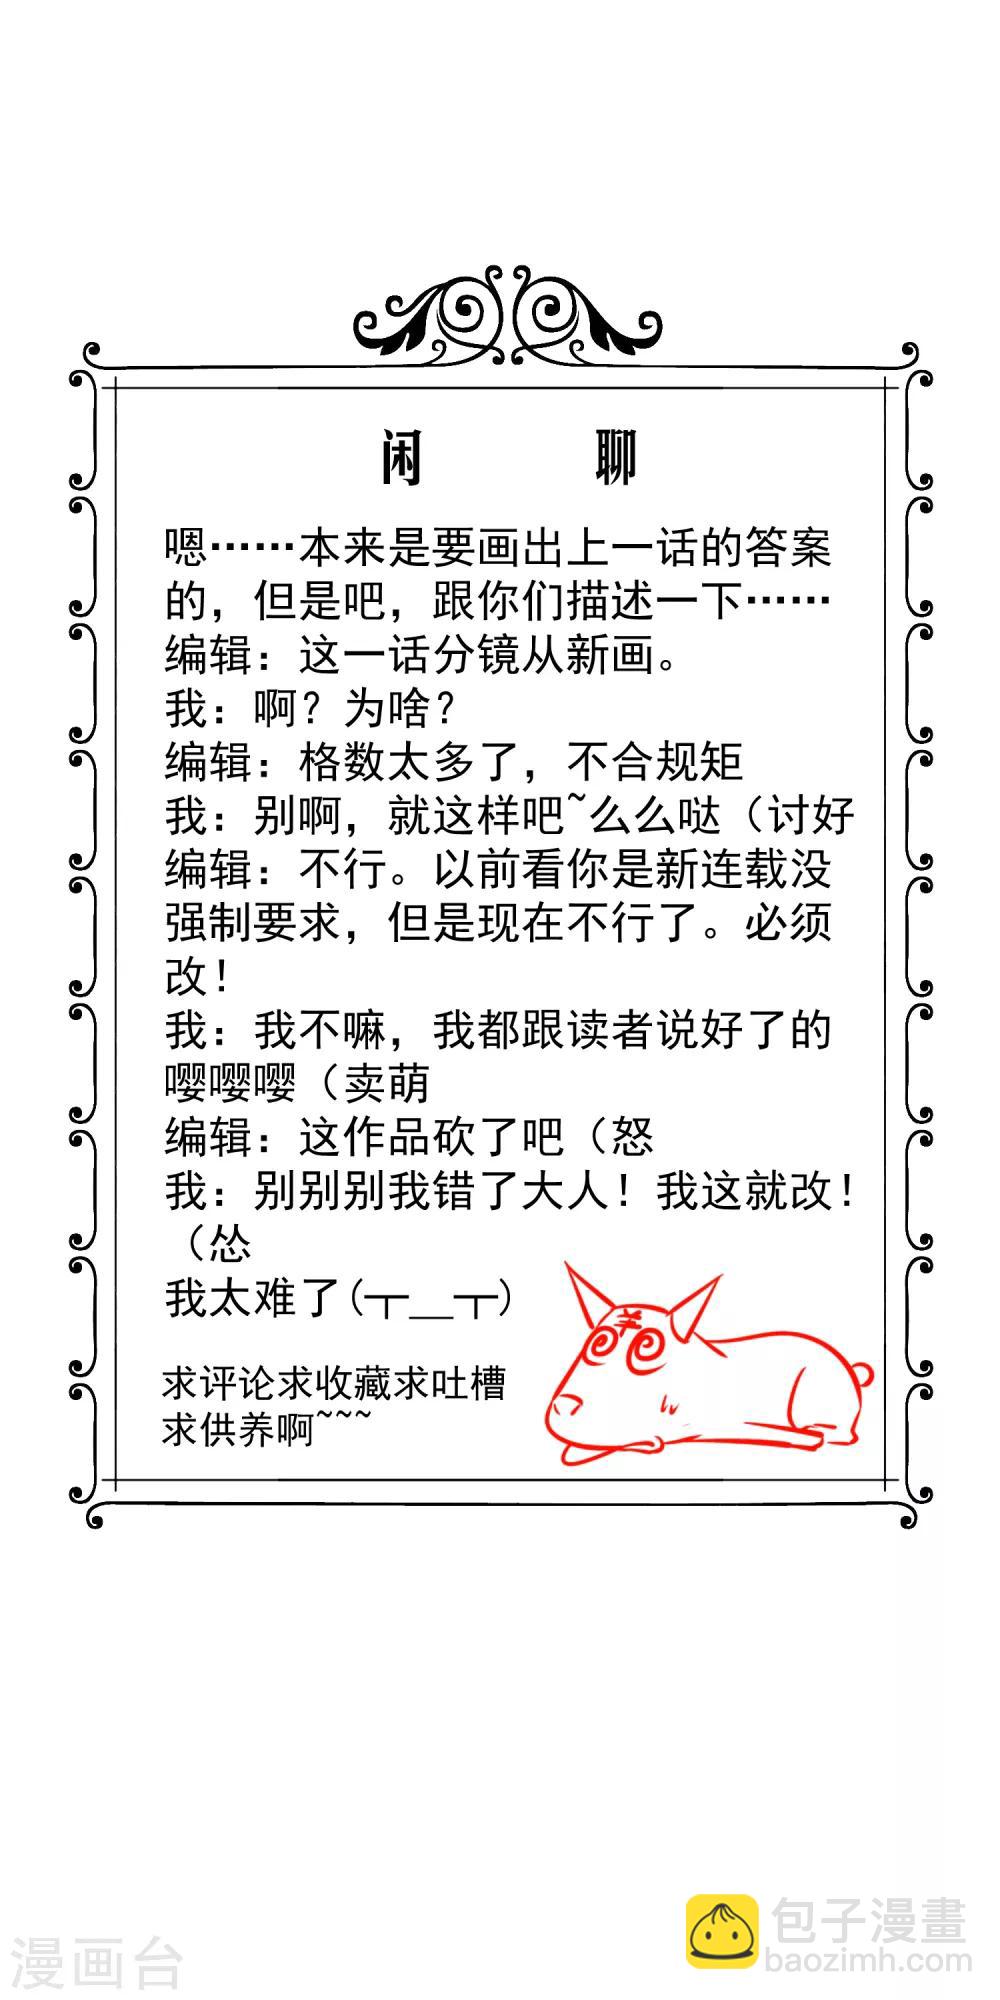 闲 聊
嗯……本来是要画出上一话的答案
的，但是吧，跟你们描述一下……
编辑：这一话分镜从新画。
我：啊？为啥？
编辑：格数太多了，不合规矩
我：别啊，就这样吧~么么哒（讨好
编辑：不行。以前看你是新连载没
强制要求，但是现在不行了。必须
改！
我：我不嘛，我都跟读者说好了的
嘤嘤嘤（卖萌
编辑：这作品砍了吧（怒
我：别别别我错了大人！我这就改！
（怂
我太难了(┬＿┬)
求评论求收藏求吐槽
求供养啊~~~
漫画台
包子漫畫
baozimh.com